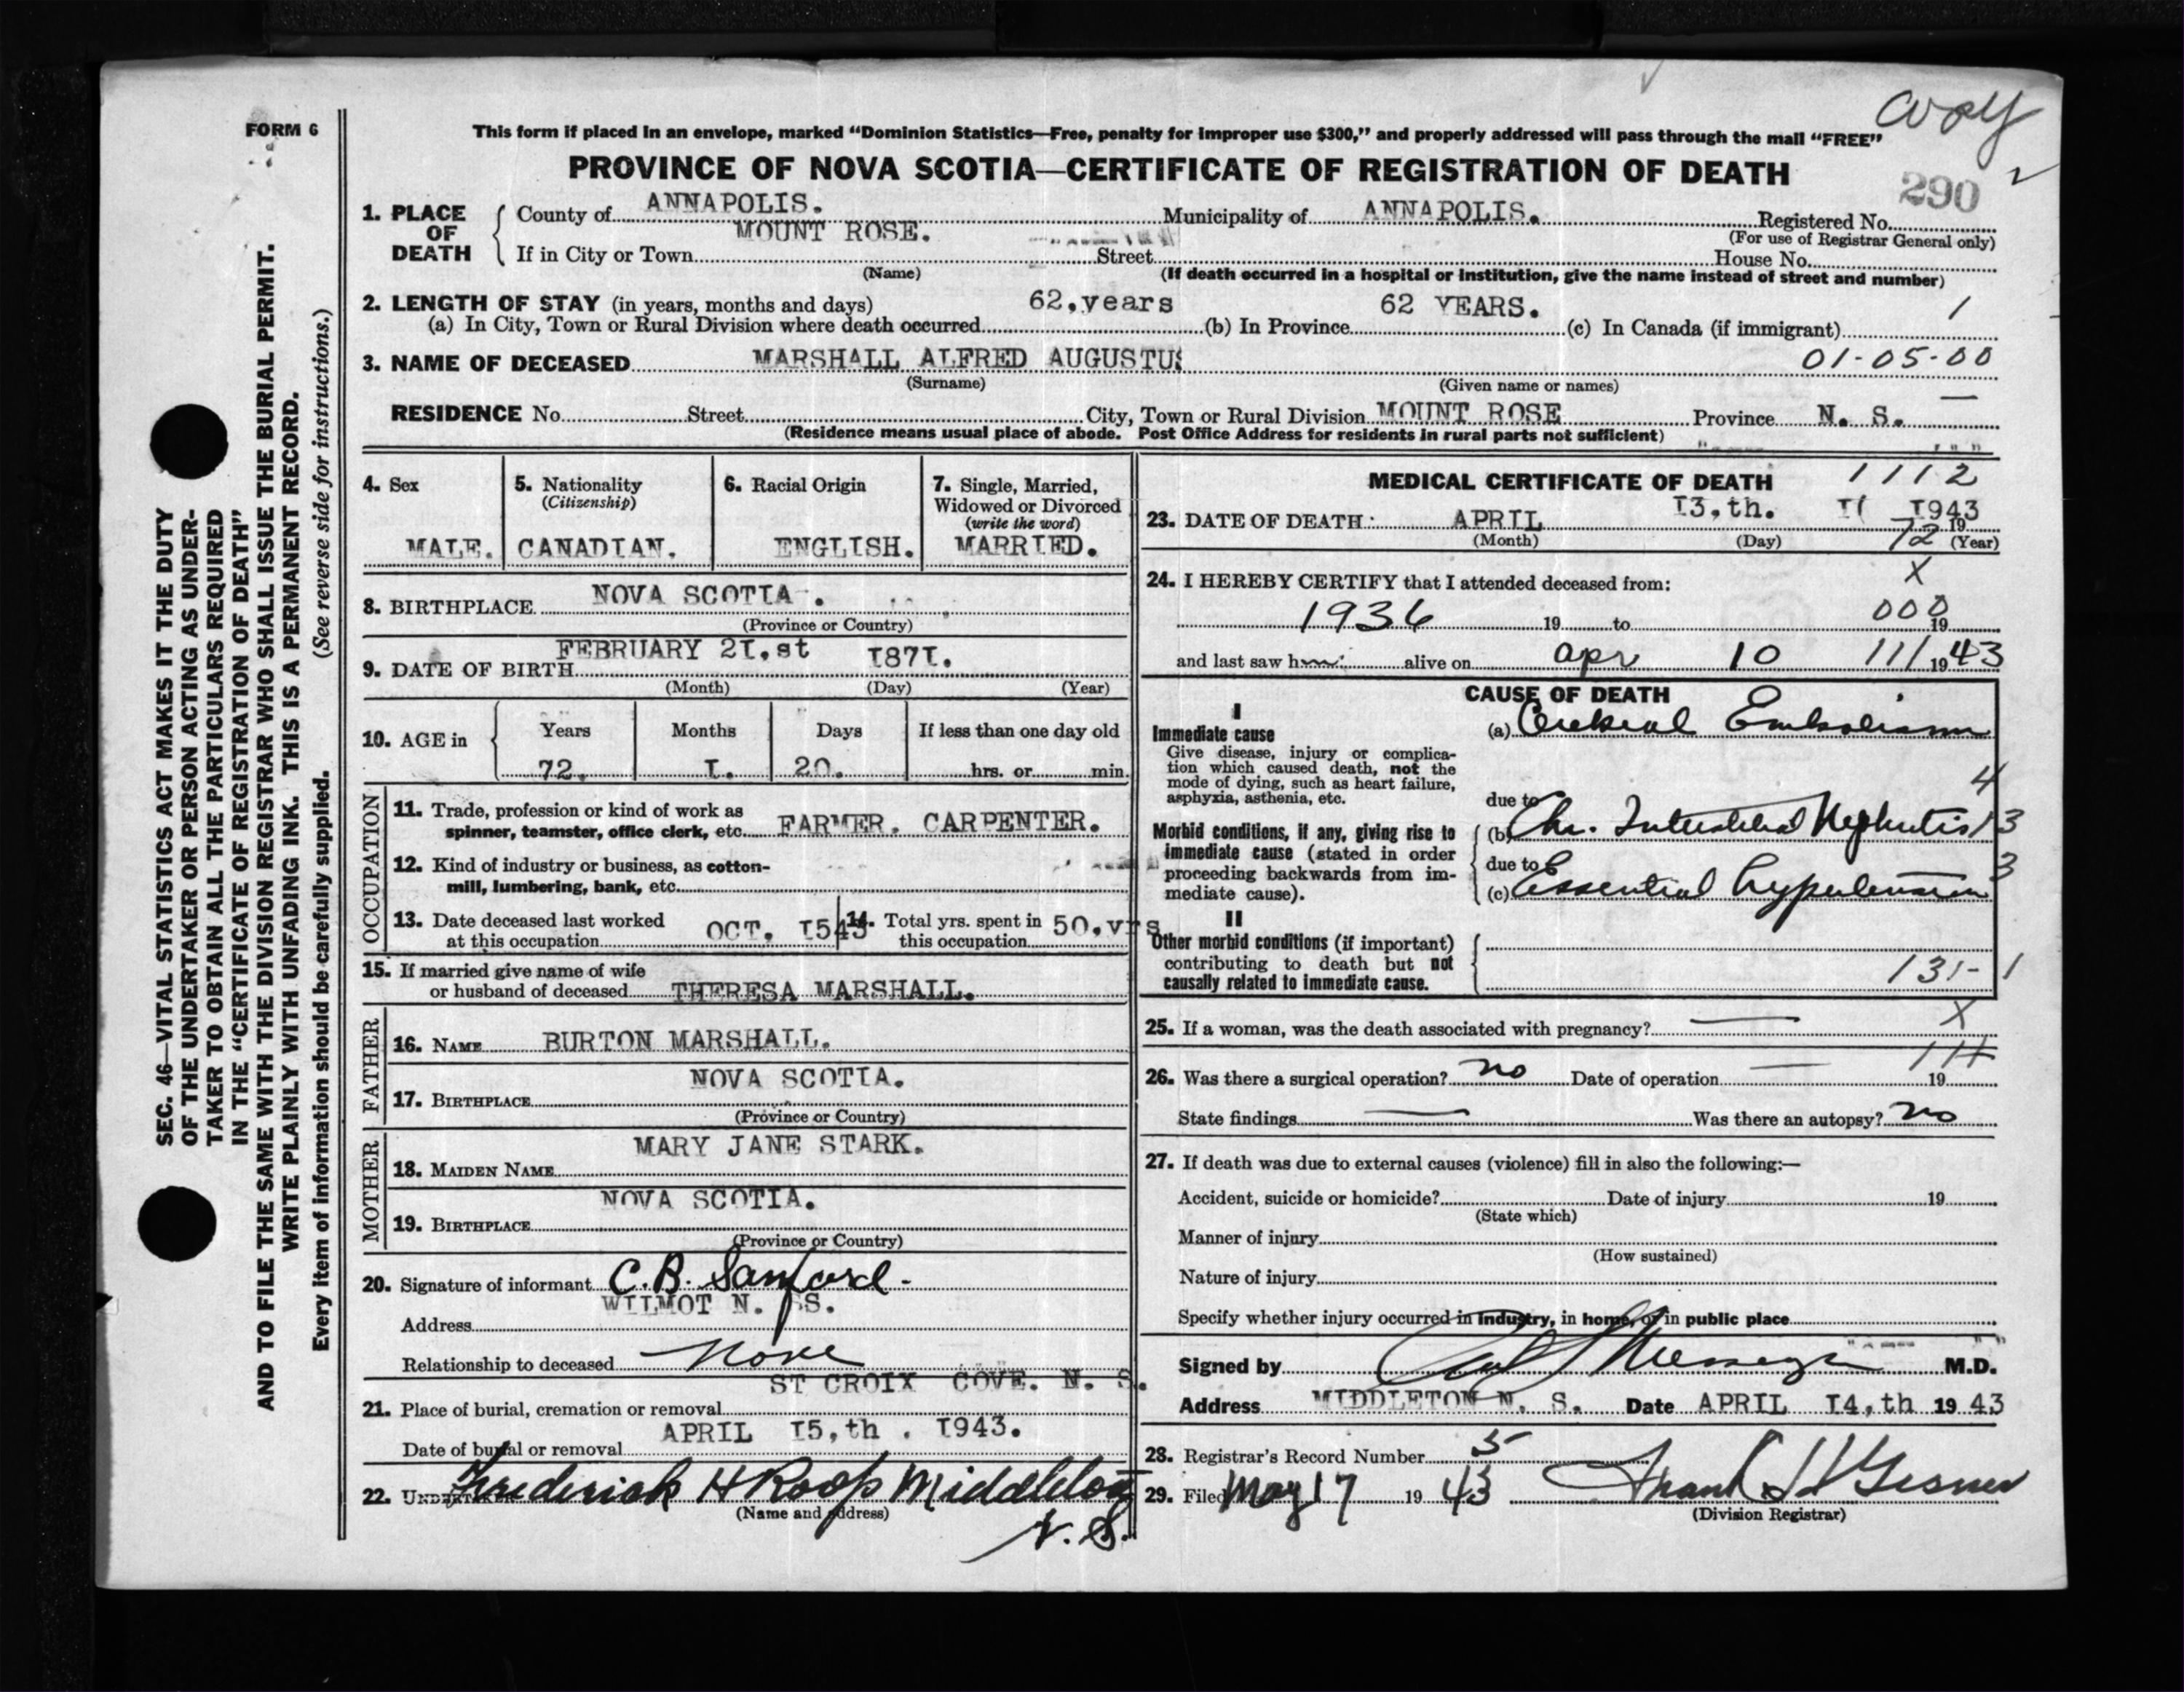 copy
FORM 6
This form if placed in an envelope, marked “Dominion Statistics—Free, penalty for improper use $300,” and properly addressed will pass through the mail “FREE”
PROVINCE OF NOVA SCOTIA—CERTIFICATE OF REGISTRATION OF DEATH
290
1. PLACE OF DEATH County of ANNAPOLIS. Municipality of ANNAPOLIS. Registered No.
(For use of Registrar General only)
If in City or Town MOUNT ROSE. Street House No.
(Name) (If death occurred in a hospital or institution, give the name instead of street and number)
2. LENGTH OF STAY (in years, months and days)
(a) In City, Town or Rural Division where death occurred 62,years (b) In Province 62 YEARS. (c) In Canada (if immigrant) 1
3. NAME OF DECEASED MARSHALL ALFRED AUGUSTUS 01-05-00
(Surname) (Given name or names)
RESIDENCE No. Street City, Town or Rural Division MOUNT ROSE Province N. S.
(Residence means usual place of abode. Post Office Address for residents in rural parts not sufficient)
4. Sex MALE.
5. Nationality (Citizenship) CANADIAN.
6. Racial Origin ENGLISH.
7. Single, Married, Widowed or Divorced (write the word) MARRIED.
8. BIRTHPLACE NOVA SCOTIA .
(Province or Country)
9. DATE OF BIRTH FEBRUARY 2I.st I87I.
(Month) (Day) (Year)
10. AGE in Years 72. Months I. Days 20. If less than one day old hrs. or min.
OCCUPATION
11. Trade, profession or kind of work as spinner, teamster, office clerk, etc. FARMER. CARPENTER.
12. Kind of industry or business, as cotton-mill, lumbering, bank, etc.
13. Date deceased last worked at this occupation OCT. I543
14. Total yrs. spent in this occupation 50.yrs
15. If married give name of wife or husband of deceased THERESA MARSHALL.
FATHER
16. NAME BURTON MARSHALL.
17. BIRTHPLACE NOVA SCOTIA.
(Province or Country)
MOTHER
18. MAIDEN NAME MARY JANE STARK.
19. BIRTHPLACE NOVA SCOTIA.
(Province or Country)
20. Signature of informant C.B. Sanford.
Address WILMOT N. S.
Relationship to deceased None
21. Place of burial, cremation or removal ST CROIX COVE. N. S.
Date of burial or removal APRIL I5,th . I943.
22. UNDERTAKER Frederick H Roop Middleton
(Name and address)
N. S.
MEDICAL CERTIFICATE OF DEATH 1112
23. DATE OF DEATH: APRIL I3,th. I943
(Month) (Day) 72 19 (Year)
24. I HEREBY CERTIFY that I attended deceased from: X
1936 19 to 000 19
and last saw him alive on apr 10 11/ 1943
CAUSE OF DEATH
I
Immediate cause (a) Cerebral Embolism
Give disease, injury or complication which caused death, not the mode of dying, such as heart failure, asphyxia, asthenia, etc.
4
due to
Morbid conditions, if any, giving rise to immediate cause (stated in order proceeding backwards from immediate cause).
(b) Chr. Interstitial Nephritis 13
due to 3
(c) Essential hypertension
II
Other morbid conditions (if important) contributing to death but not causally related to immediate cause.
131-1
25. If a woman, was the death associated with pregnancy? — X
26. Was there a surgical operation? no Date of operation — 19
State findings — Was there an autopsy? no
27. If death was due to external causes (violence) fill in also the following:—
Accident, suicide or homicide? Date of injury 19
(State which)
Manner of injury
(How sustained)
Nature of injury
Specify whether injury occurred in industry, in home, or in public place
Signed by M.D.
Address MIDDLETON N. S. Date APRIL I4,th 19 43
28. Registrar's Record Number 5
29. Filed May 17 19 43 Frank H Gesner
(Division Registrar)
SEC. 46—VITAL STATISTICS ACT MAKES IT THE DUTY
OF THE UNDERTAKER OR PERSON ACTING AS UNDER-
TAKER TO OBTAIN ALL THE PARTICULARS REQUIRED
IN THE “CERTIFICATE OF REGISTRATION OF DEATH”
AND TO FILE THE SAME WITH THE DIVISION REGISTRAR WHO SHALL ISSUE THE BURIAL PERMIT.
WRITE PLAINLY WITH UNFADING INK. THIS IS A PERMANENT RECORD.
Every item of information should be carefully supplied. (See reverse side for instructions.)